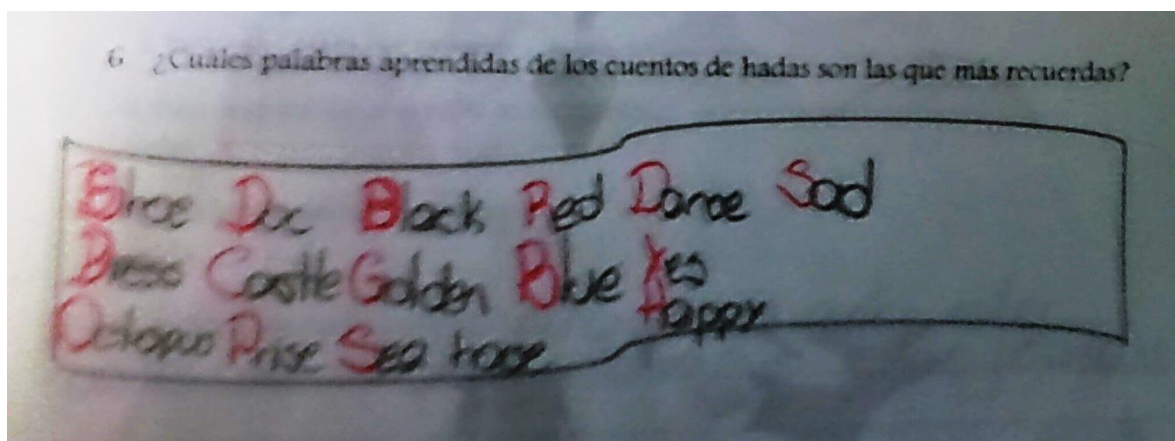 6 ¿Cuáles palabras aprendidas de los cuentos de hadas son las que más recuerdas?
Shoe Duc Black Red Dance Sad
Dress Castle Golden Blue Yes
Octopus Prise Sea horse Happy